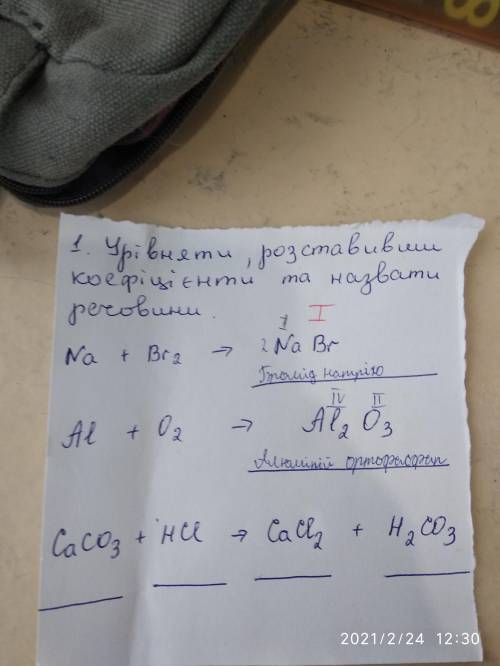 1. Урівняти, розставивши
коефіцієнти та назвати
речовини.
I I
Na + Br₂ → 2 Na Br
Бромід натрію
IV II
Al + O₂ → Al₂ O₃
Алюміній ортофосфат
CaCO₃ + HCl → CaCl₂ + H₂CO₃
2021/2/24 12:30